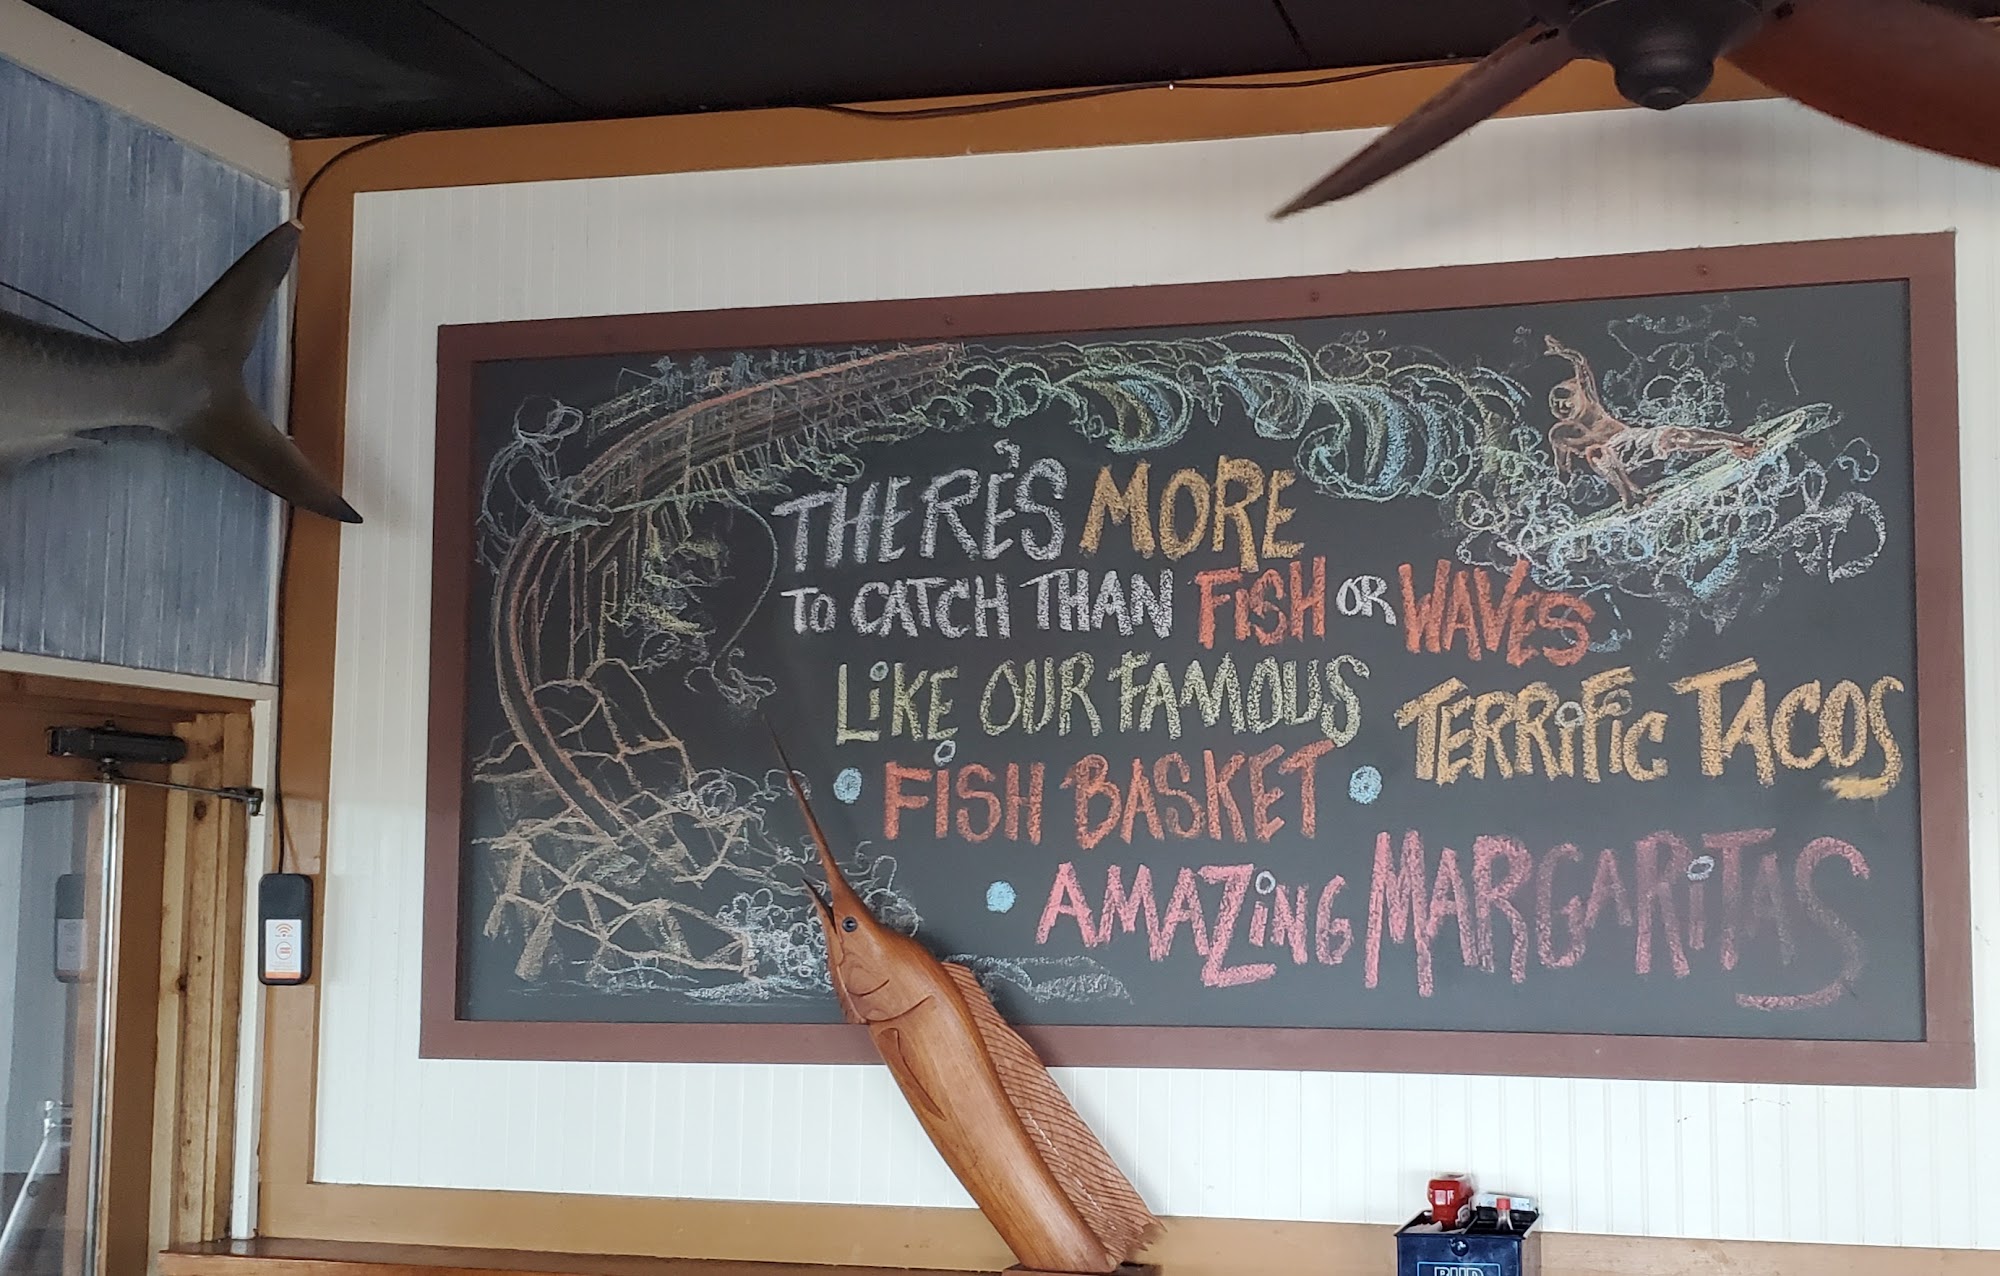 THERE'S MORE
TO CATCH THAN FISH OR WAVES
LiKE OUR FAMOUS
• FiSH BASKET • TERRiFiC TACOS
• AMAZiNG MARGARiTAS